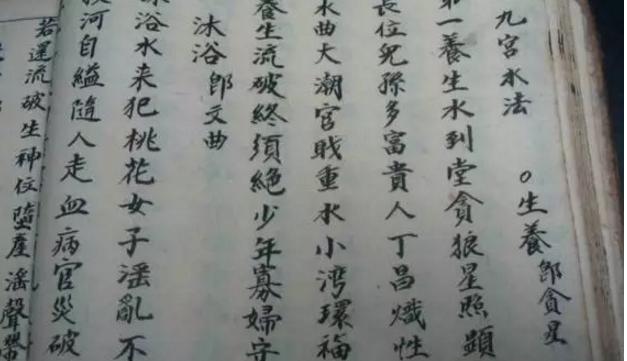 九宮水法 ○生養 郎貪星
第一養生水到堂貪狼星照顕
長位兒孫多富貴人丁昌熾性
水曲大潮官職重水小湾環福
養生流破終須絕少年寡婦守
沐浴 郎文曲
沐浴水来犯桃花女子滛亂不
投河自縊隨人走血病官災破
若還流破生神位墮産滛聲